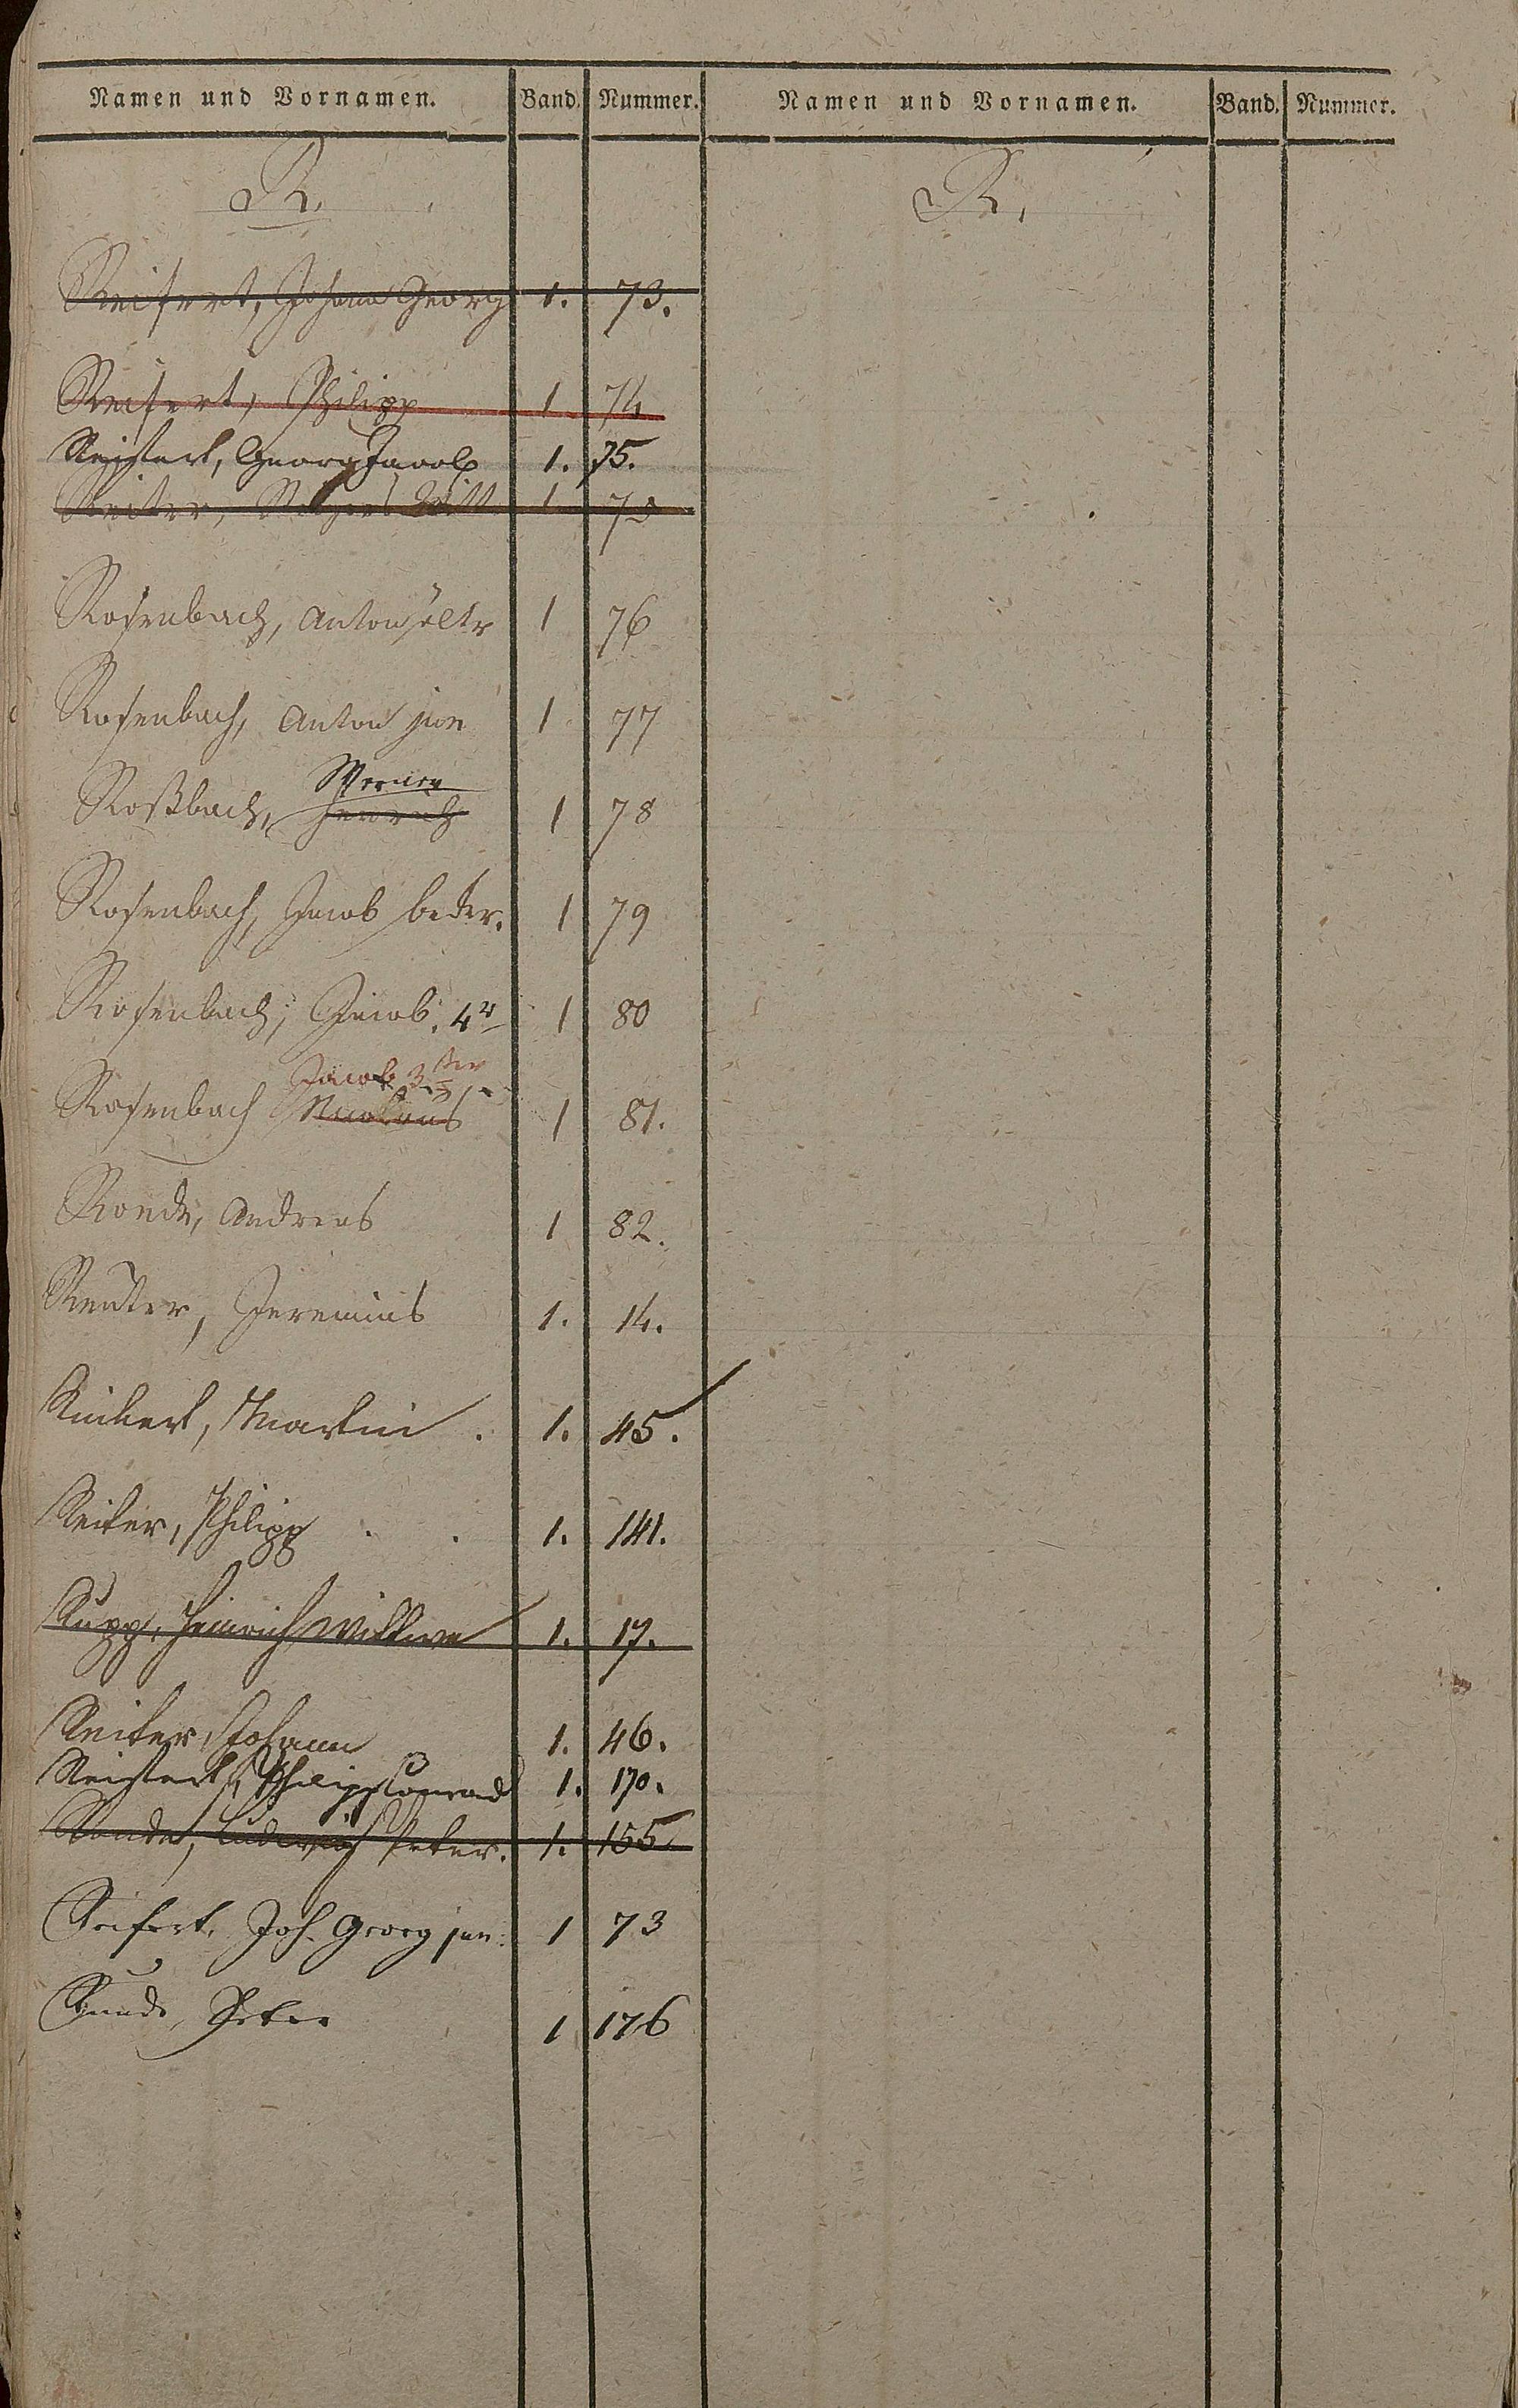 Namen und Vornamen. Band. Nummer. Namen und Vornamen. Band. Nummer.
R. R.
Reifert, Johann Georg 1. 73.
Reifert, Philipp 1 74
Reifert, Georg Jacob 1. 75.
Reiter, Witt 1 75
Rosenbach, Anton ältr 1 76
Rosenbach, Anton jun 1 77
Werner
Roßbach, Henrich 1 78
Rosenbach, Jacob 1 79
Rosenbach, Jacob. 4r 1 80
Jacob 3ter
Rosenbach Nicolaus 1 81.
Ronde, Andreas 1 82.
Reuter, Jeremias 1. 14.
Martin . 1. 45.
Reiter, Philipp . . 1. 141.
Rupp, Heinrich Wittwe 1. 17.
Reiter, Johann 1. 46.
Reifert, Philipp Conrad 1. 170.
Ronde, Ludwig Peter. 1. 155.
Reifert, Joh. Georg jun: 1 73
Peter 1 176